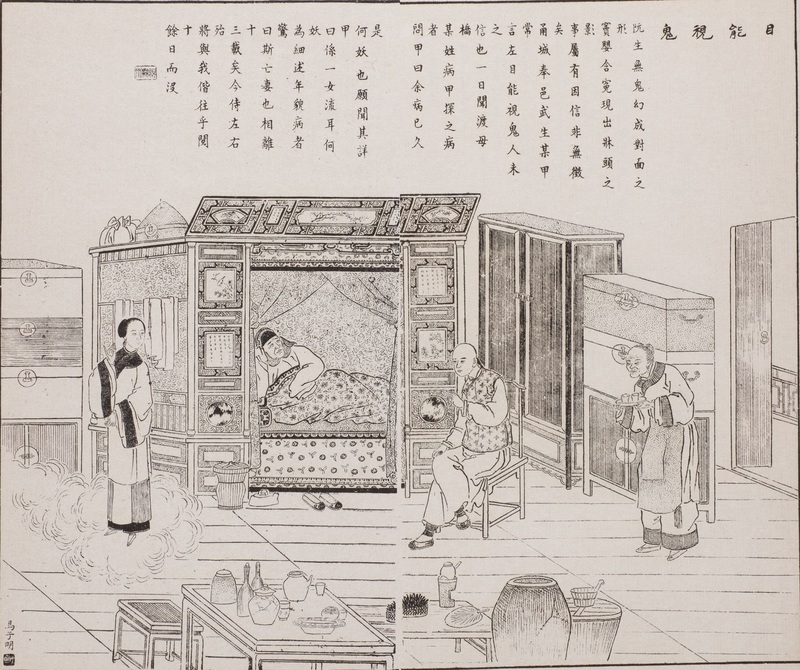 目能視鬼
阮生無鬼幻成對面之形
竇嬰含冤現出牀頭之影
事屬有因信非無徵矣
甬城奉邑武生某甲常
言左目能視鬼人未之
信也一日聞渡母橋
某姓病甲探之病者
問甲曰余病已久
是何妖也願聞其詳甲
曰係一女流耳何妖
為細述年貌病者驚
曰斯亡妻也相離十
三載矣今侍左右殆
將與我偕往乎閱十
餘日而沒
馬子明